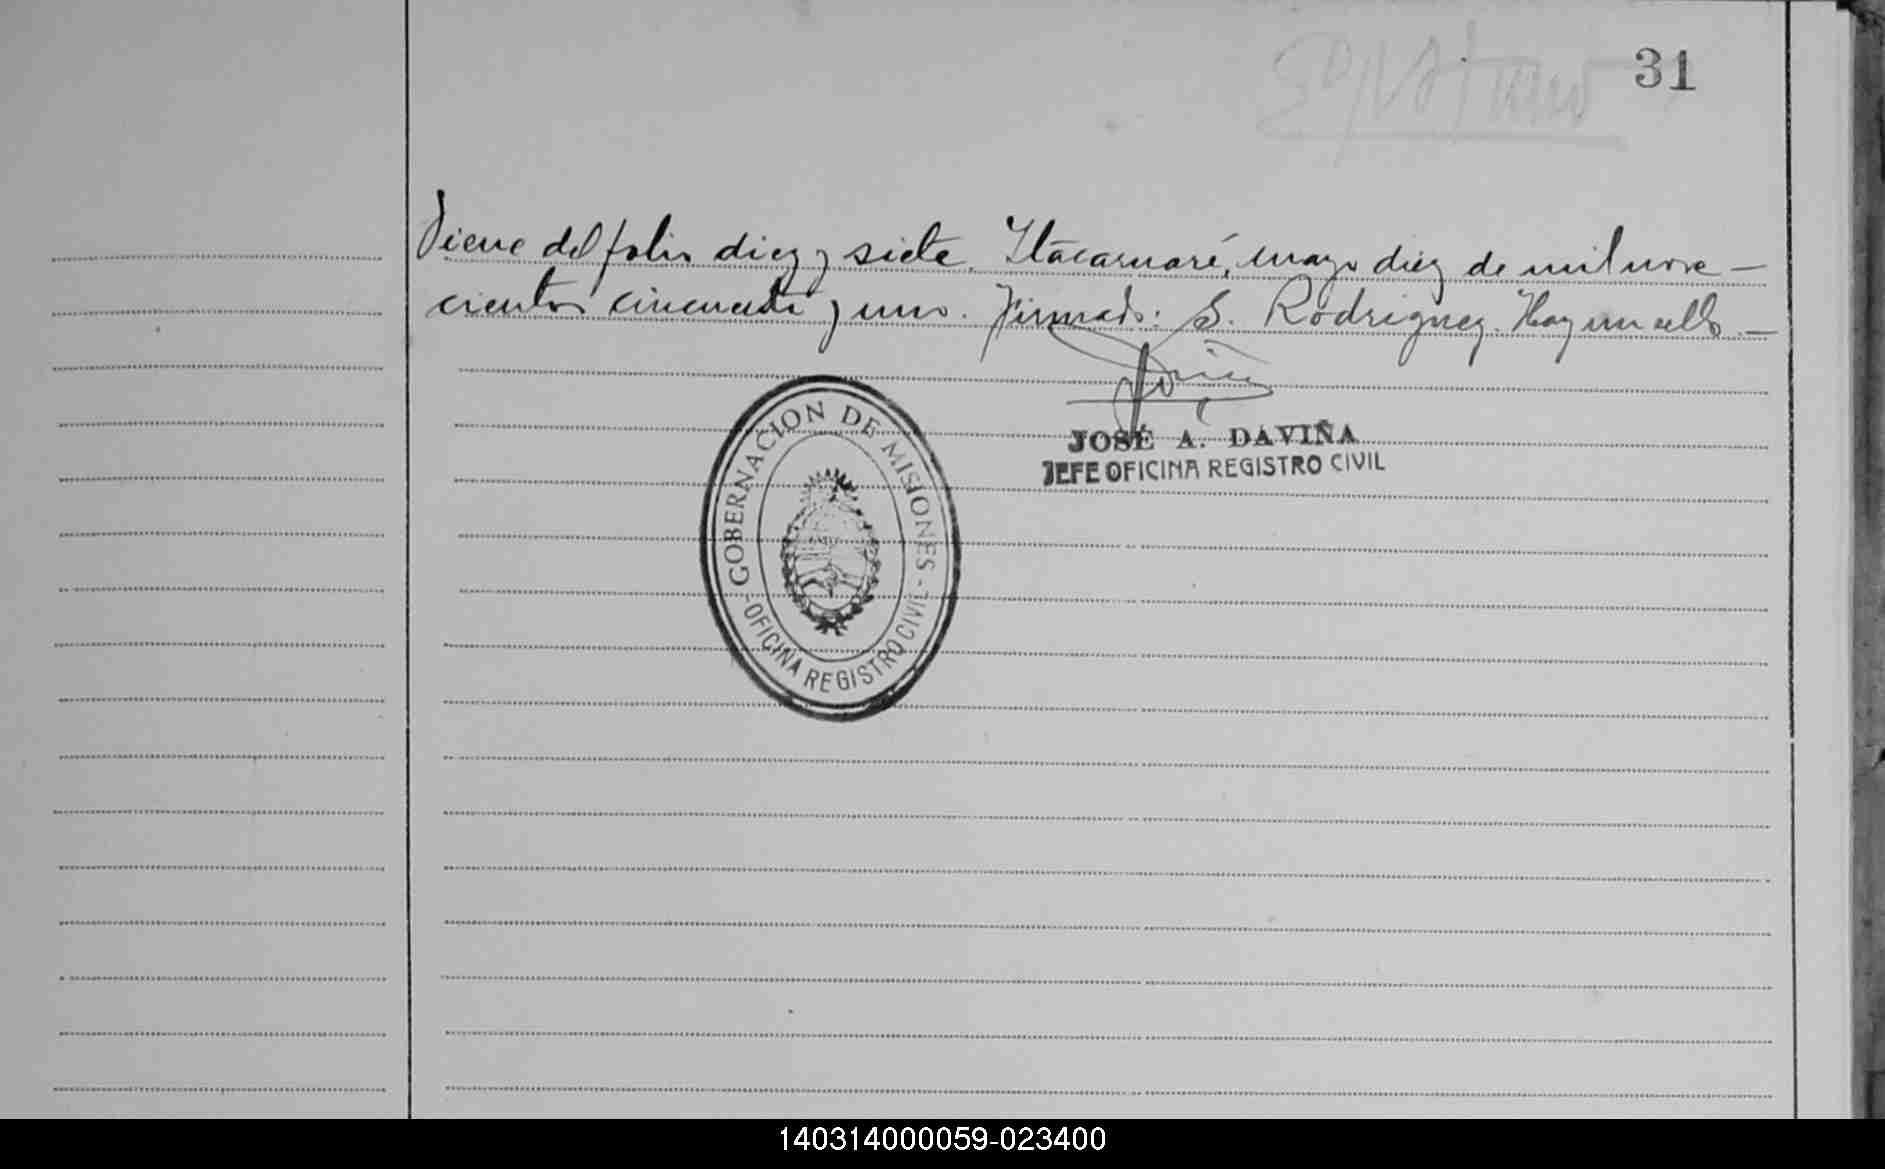 31
Viene del folio diez y siete. Itacaruaré, mayo diez de mil nove-
cientos cincuenta y uno. Firmado: S. Rodriguez. Hay un sello.-
JOSÉ A. DAVIÑA
JEFE OFICINA REGISTRO CIVIL
GOBERNACION DE MISIONES
-OFICINA REGISTRO CIVIL-
140314000059-023400